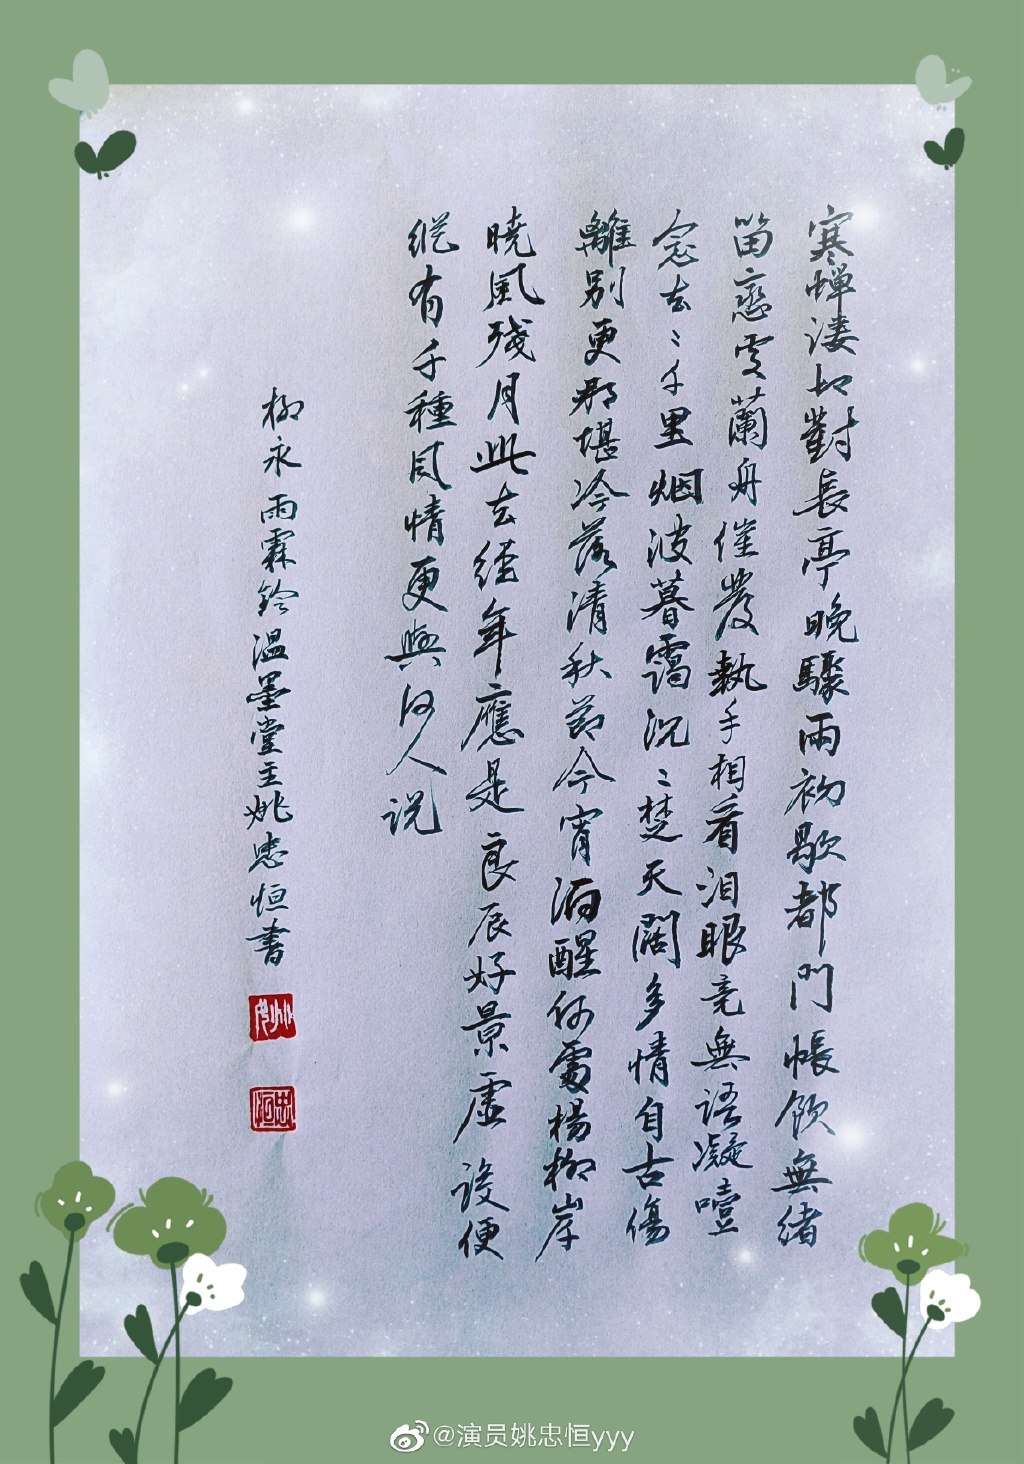 寒蟬淒切對長亭晚驟雨初歇都門帳飲無緒
留戀處蘭舟催發執手相看泪眼竟無語凝噎
念去〻千里烟波暮靄沉〻楚天闊多情自古傷
離別更那堪冷落清秋節今宵酒醒何處楊柳岸
曉風殘月此去經年應是良辰好景虛設便
縱有千種風情更與何人说
柳永雨霖鈴温墨堂主姚忠恒書
姚
忠恒
@演员姚忠恒yyy